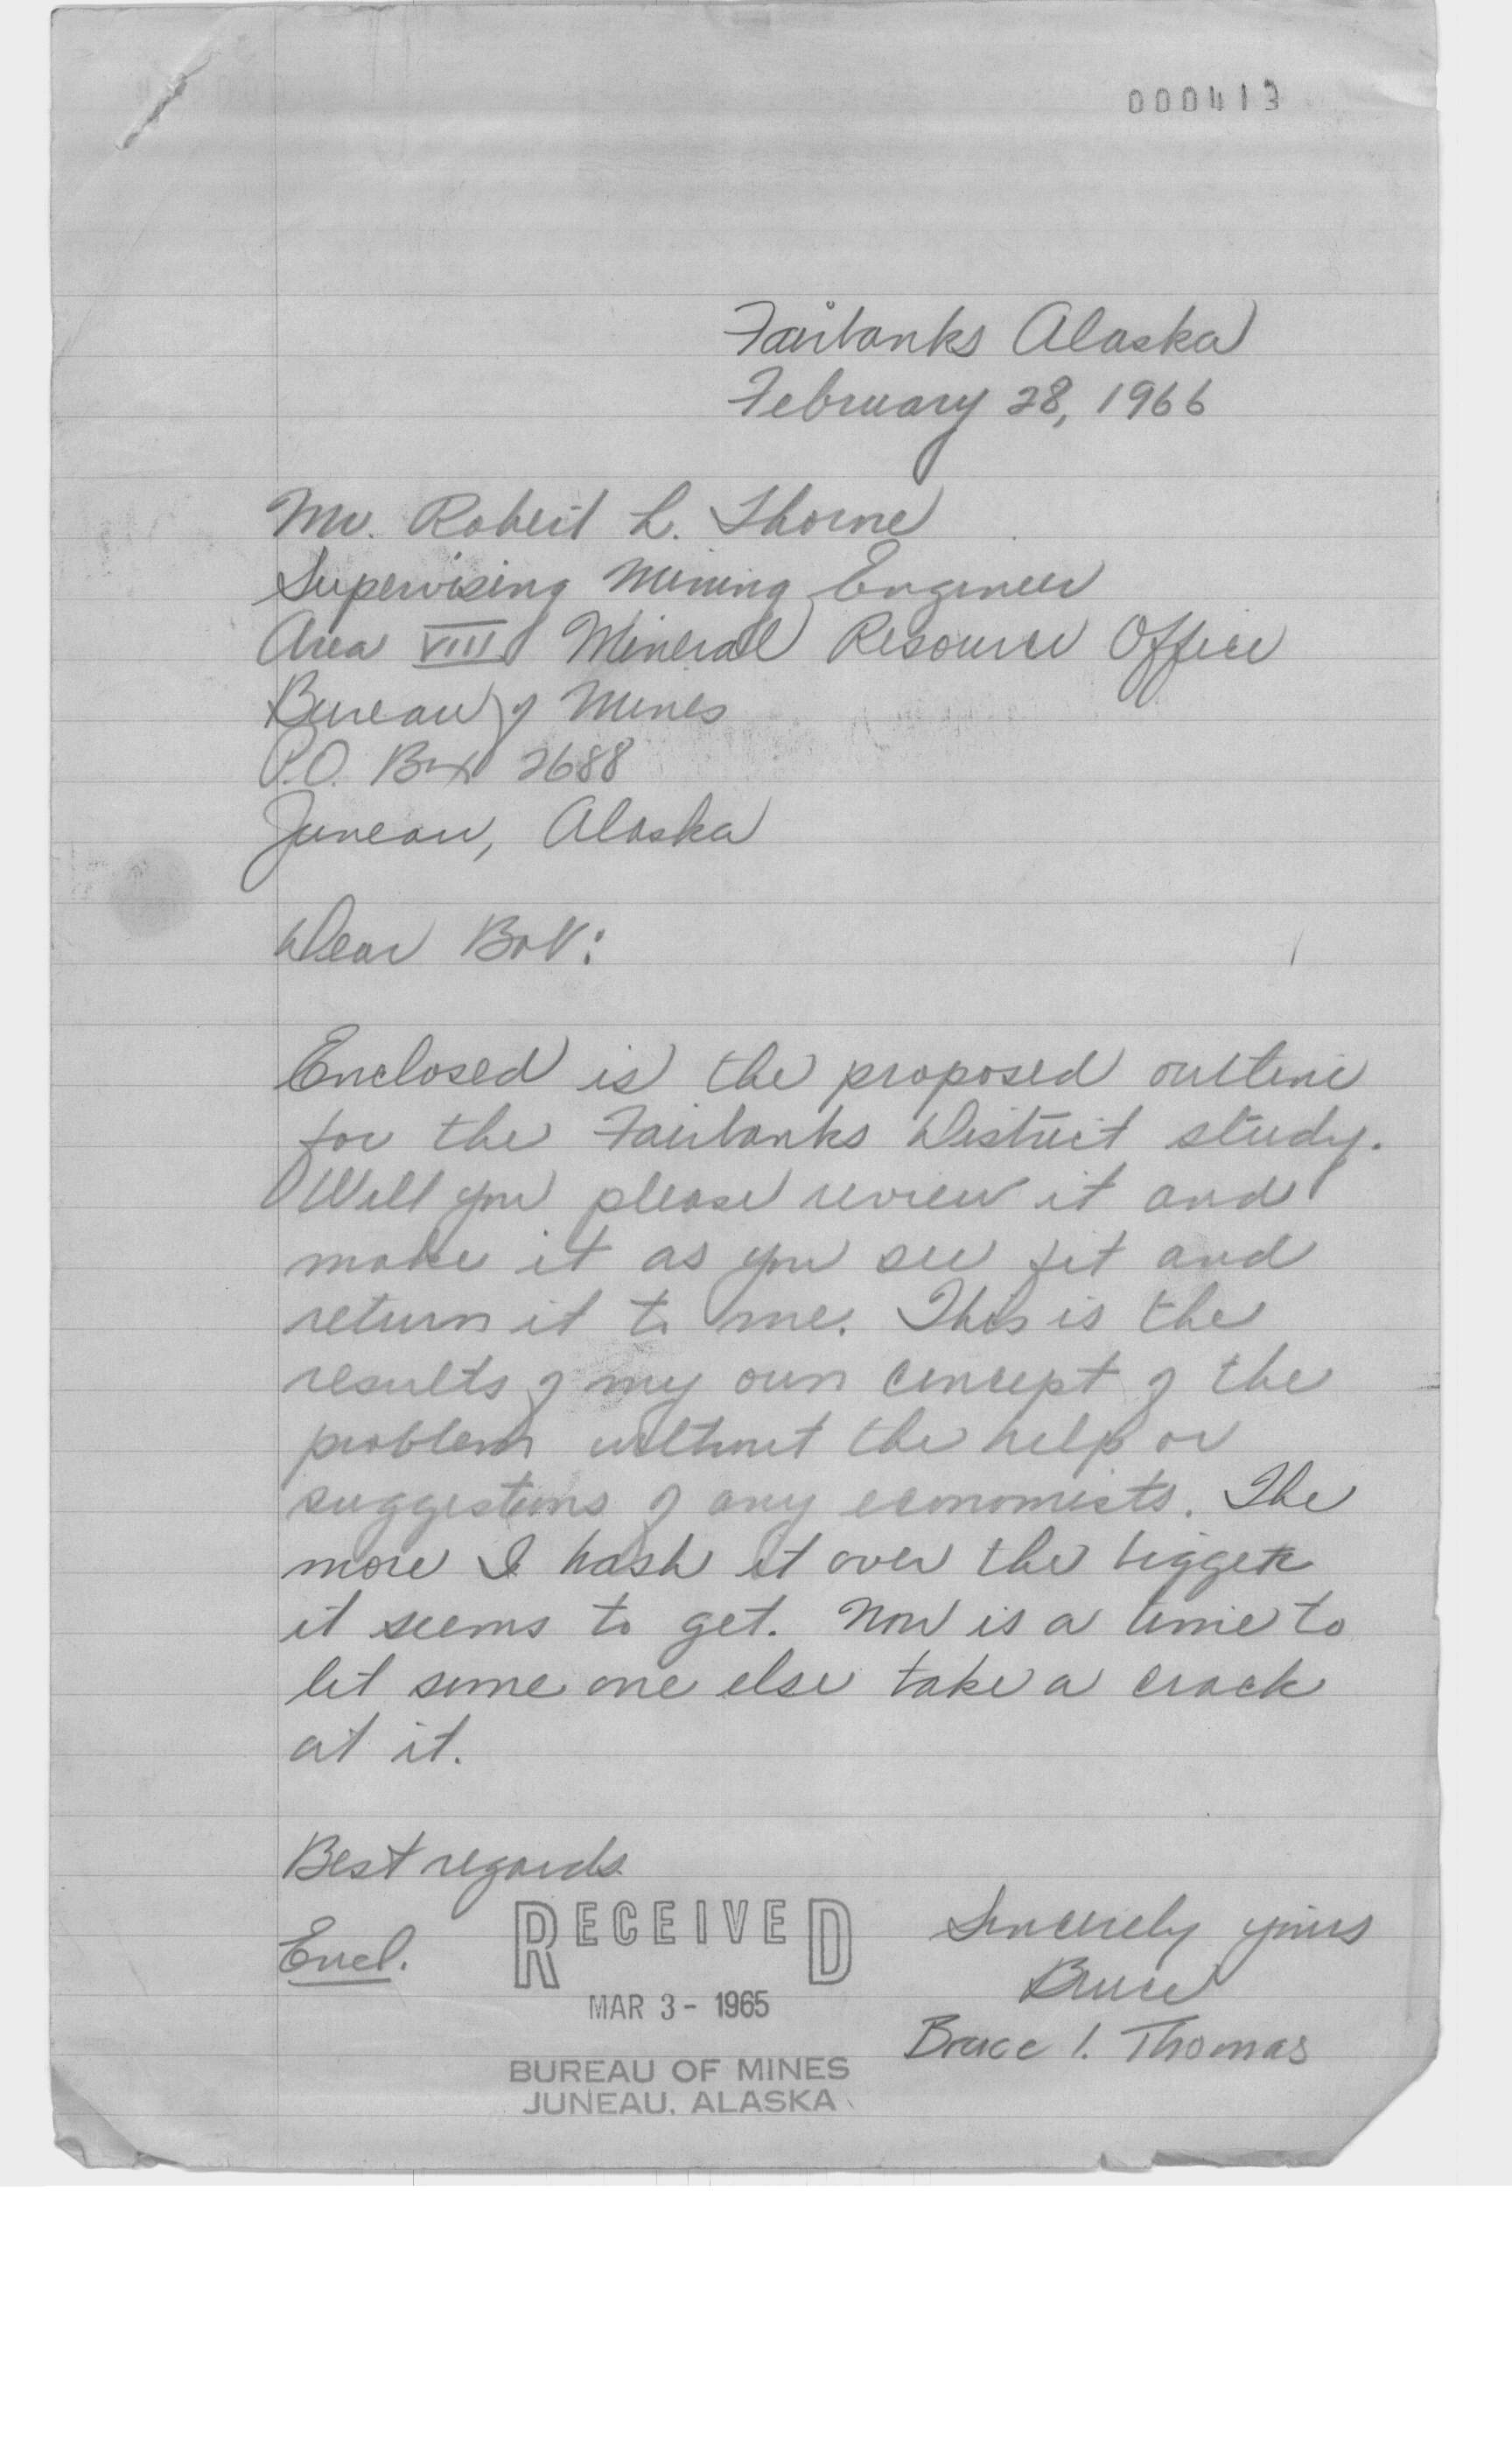 000413
Fairbanks Alaska
February 28, 1966
Mr. Robert L. Thorne
Supervising Mining Engineer
Area VIII Mineral Resource Office
Bureau of Mines
P.O. Box 2688
Juneau, Alaska
Dear Bob:
Enclosed is the proposed outline
for the Fairbanks District study.
Will you please review it and
make it as you see fit and
return it to me. This is the
results of my own concept of the
problem without the help or
suggestions of any economists. The
more I hash it over the bigger
it seems to get. Now is a time to
let some one else take a crack
at it.
Best regards
Encl.
RECEIVED
MAR 3 - 1965
BUREAU OF MINES
JUNEAU, ALASKA
Sincerely yours
Bruce
Bruce I. Thomas